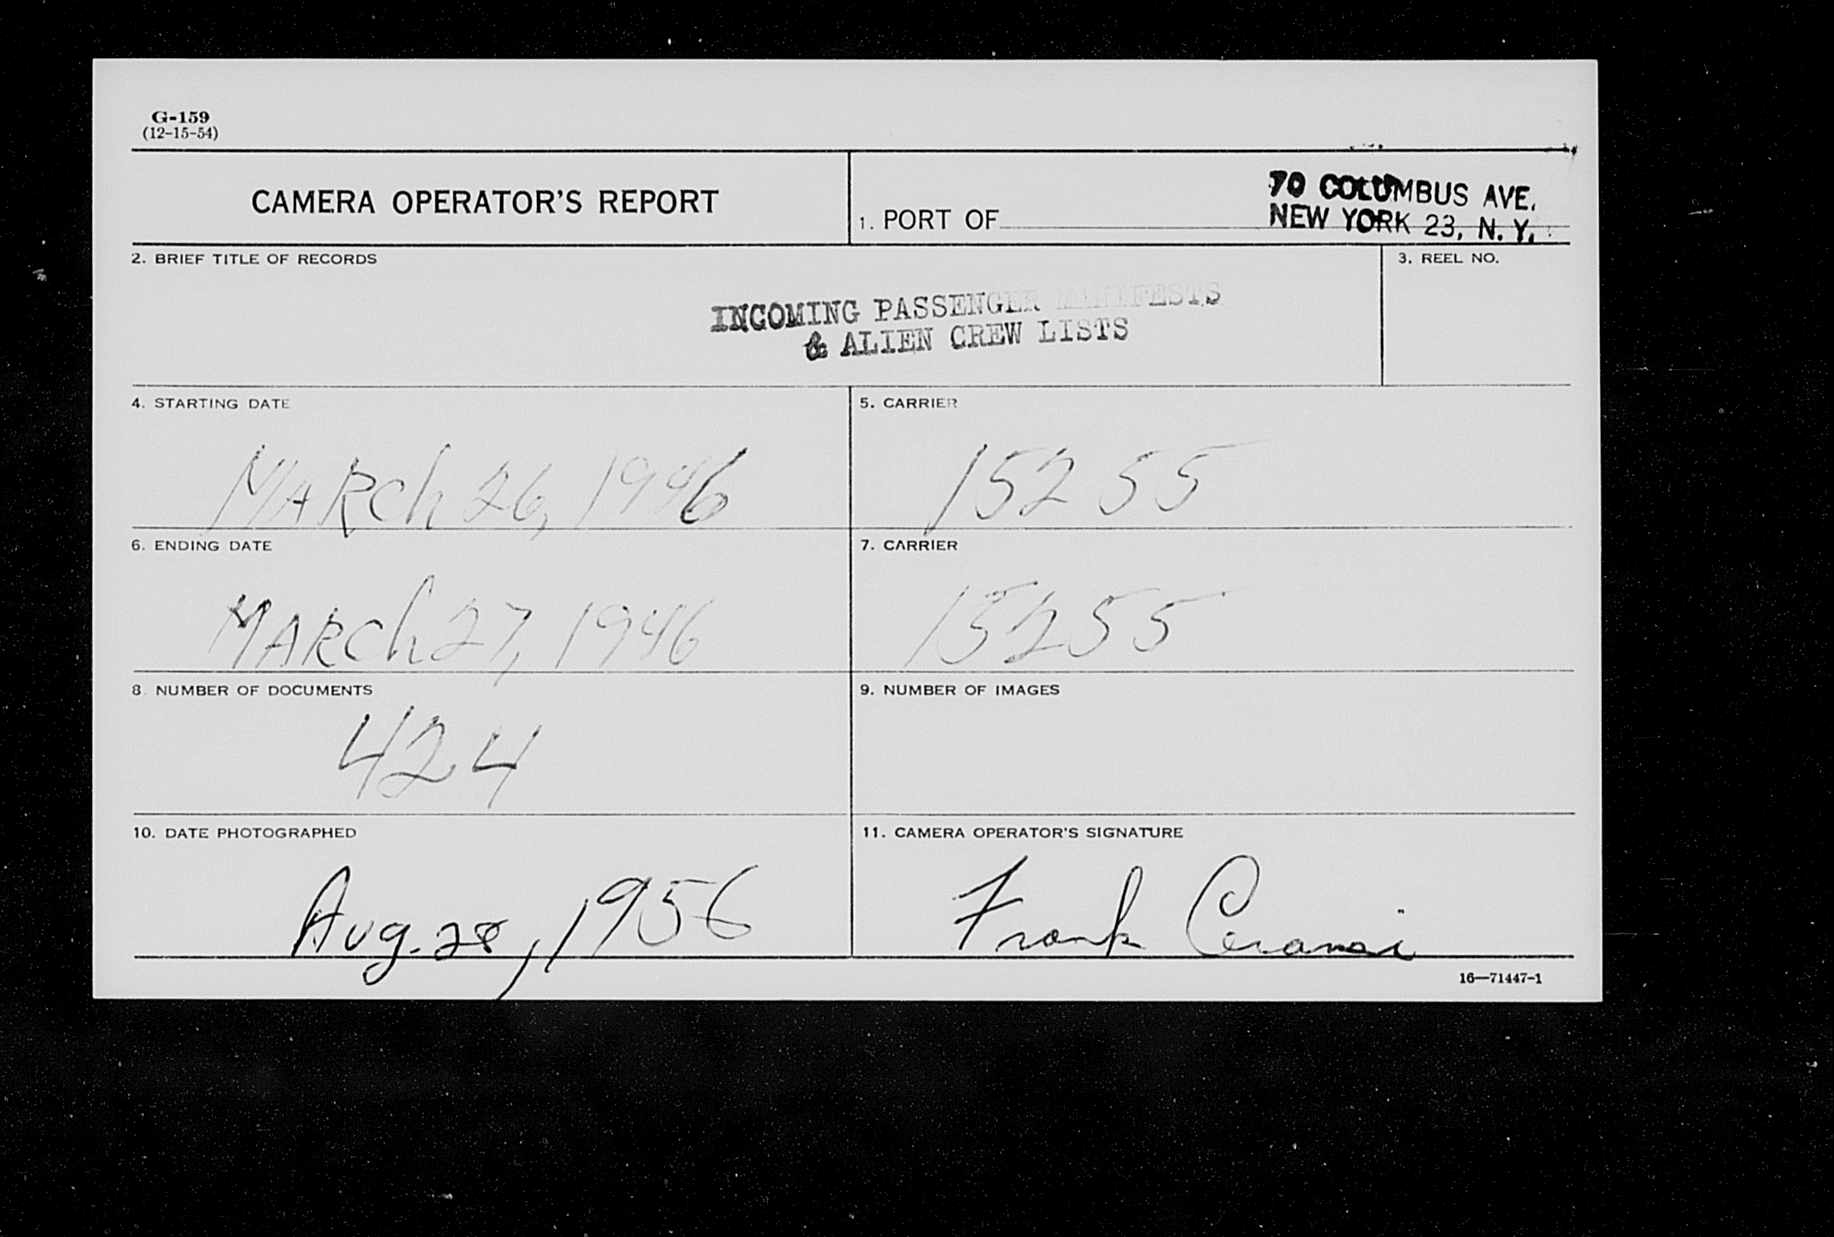 G-159
(12-15-54)
CAMERA OPERATOR'S REPORT
1. PORT OF
70 COLUMBUS AVE.
NEW YORK 23, N. Y.
2. BRIEF TITLE OF RECORDS
3. REEL NO.
INCOMING PASSENGER MANIFESTS
& ALIEN CREW LISTS
4. STARTING DATE
5. CARRIER
MARCh 26, 1946
15255
6. ENDING DATE
7. CARRIER
MARCh 27, 1946
15255
8. NUMBER OF DOCUMENTS
9. NUMBER OF IMAGES
424
10. DATE PHOTOGRAPHED
11. CAMERA OPERATOR'S SIGNATURE
Aug. 28, 1956
Frank
16—71447-1